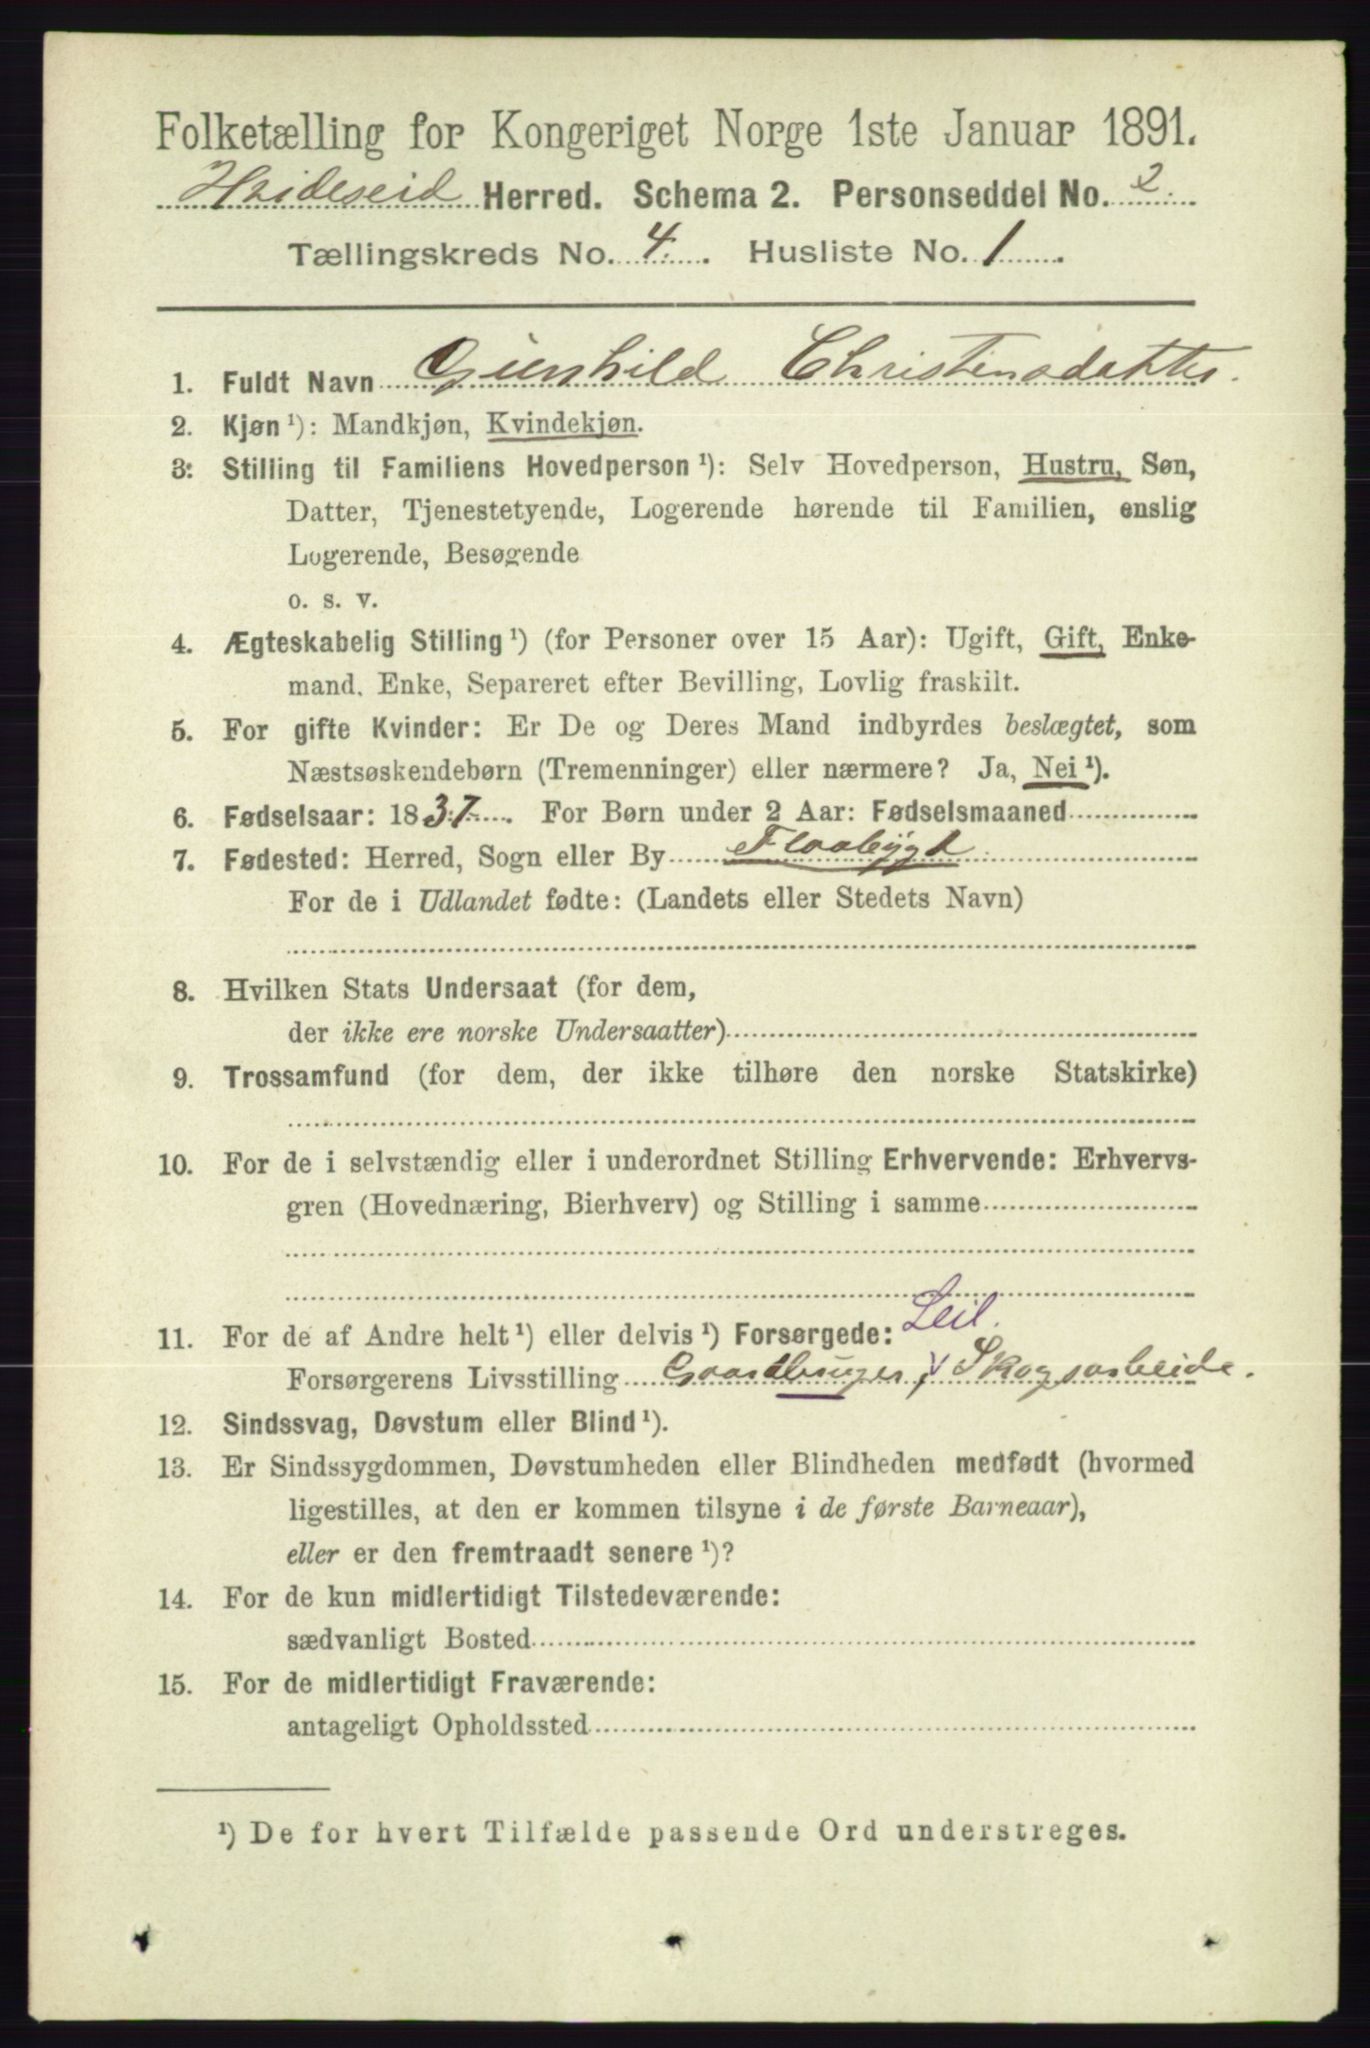 Folketælling for Kongeriget Norge 1ste Januar 1891.
Hvideseid Herred. Schema 2. Personseddel No. 2.
Tællingskreds No. 4. Husliste No. 1
1. Fuldt Navn Gunhild Christensdatter.
2. Kjøn ¹): Mandkjøn, Kvindekjøn.
3: Stilling til Familiens Hovedperson ¹): Selv Hovedperson, Hustru, Søn,
Datter, Tjenestetyende, Logerende hørende til Familien, enslig
Logerende, Besøgende
o. s. v.
4. Ægteskabelig Stilling ¹) (for Personer over 15 Aar): Ugift, Gift, Enke-
mand, Enke, Separeret efter Bevilling, Lovlig fraskilt.
5. For gifte Kvinder: Er De og Deres Mand indbyrdes beslægtet, som
Næstsøskendebørn (Tremenninger) eller nærmere? Ja, Nei ¹).
6. Fødselsaar: 1837. For Børn under 2 Aar: Fødselsmaaned
7. Fødested: Herred, Sogn eller By Flaabygd
For de i Udlandet fødte: (Landets eller Stedets Navn)
8. Hvilken Stats Undersaat (for dem,
der ikke ere norske Undersaatter)
9. Trossamfund (for dem, der ikke tilhøre den norske Statskirke)
10. For de i selvstændig eller i underordnet Stilling Erhvervende: Erhvervs-
gren (Hovednæring, Bierhverv) og Stilling i samme
Leil.
11. For de af Andre helt ¹) eller delvis ¹) Forsørgede:
Forsørgerens Livsstilling Gaardbruger, Skogsarbeide.
12. Sindssvag, Døvstum eller Blind ¹).
13. Er Sindssygdommen, Døvstumheden eller Blindheden medfødt (hvormed
ligestilles, at den er kommen tilsyne i de første Barneaar),
eller er den fremtraadt senere ¹)?
14. For de kun midlertidigt Tilstedeværende:
sædvanligt Bosted
15. For de midlertidigt Fraværende:
antageligt Opholdssted
¹) De for hvert Tilfælde passende Ord understreges.